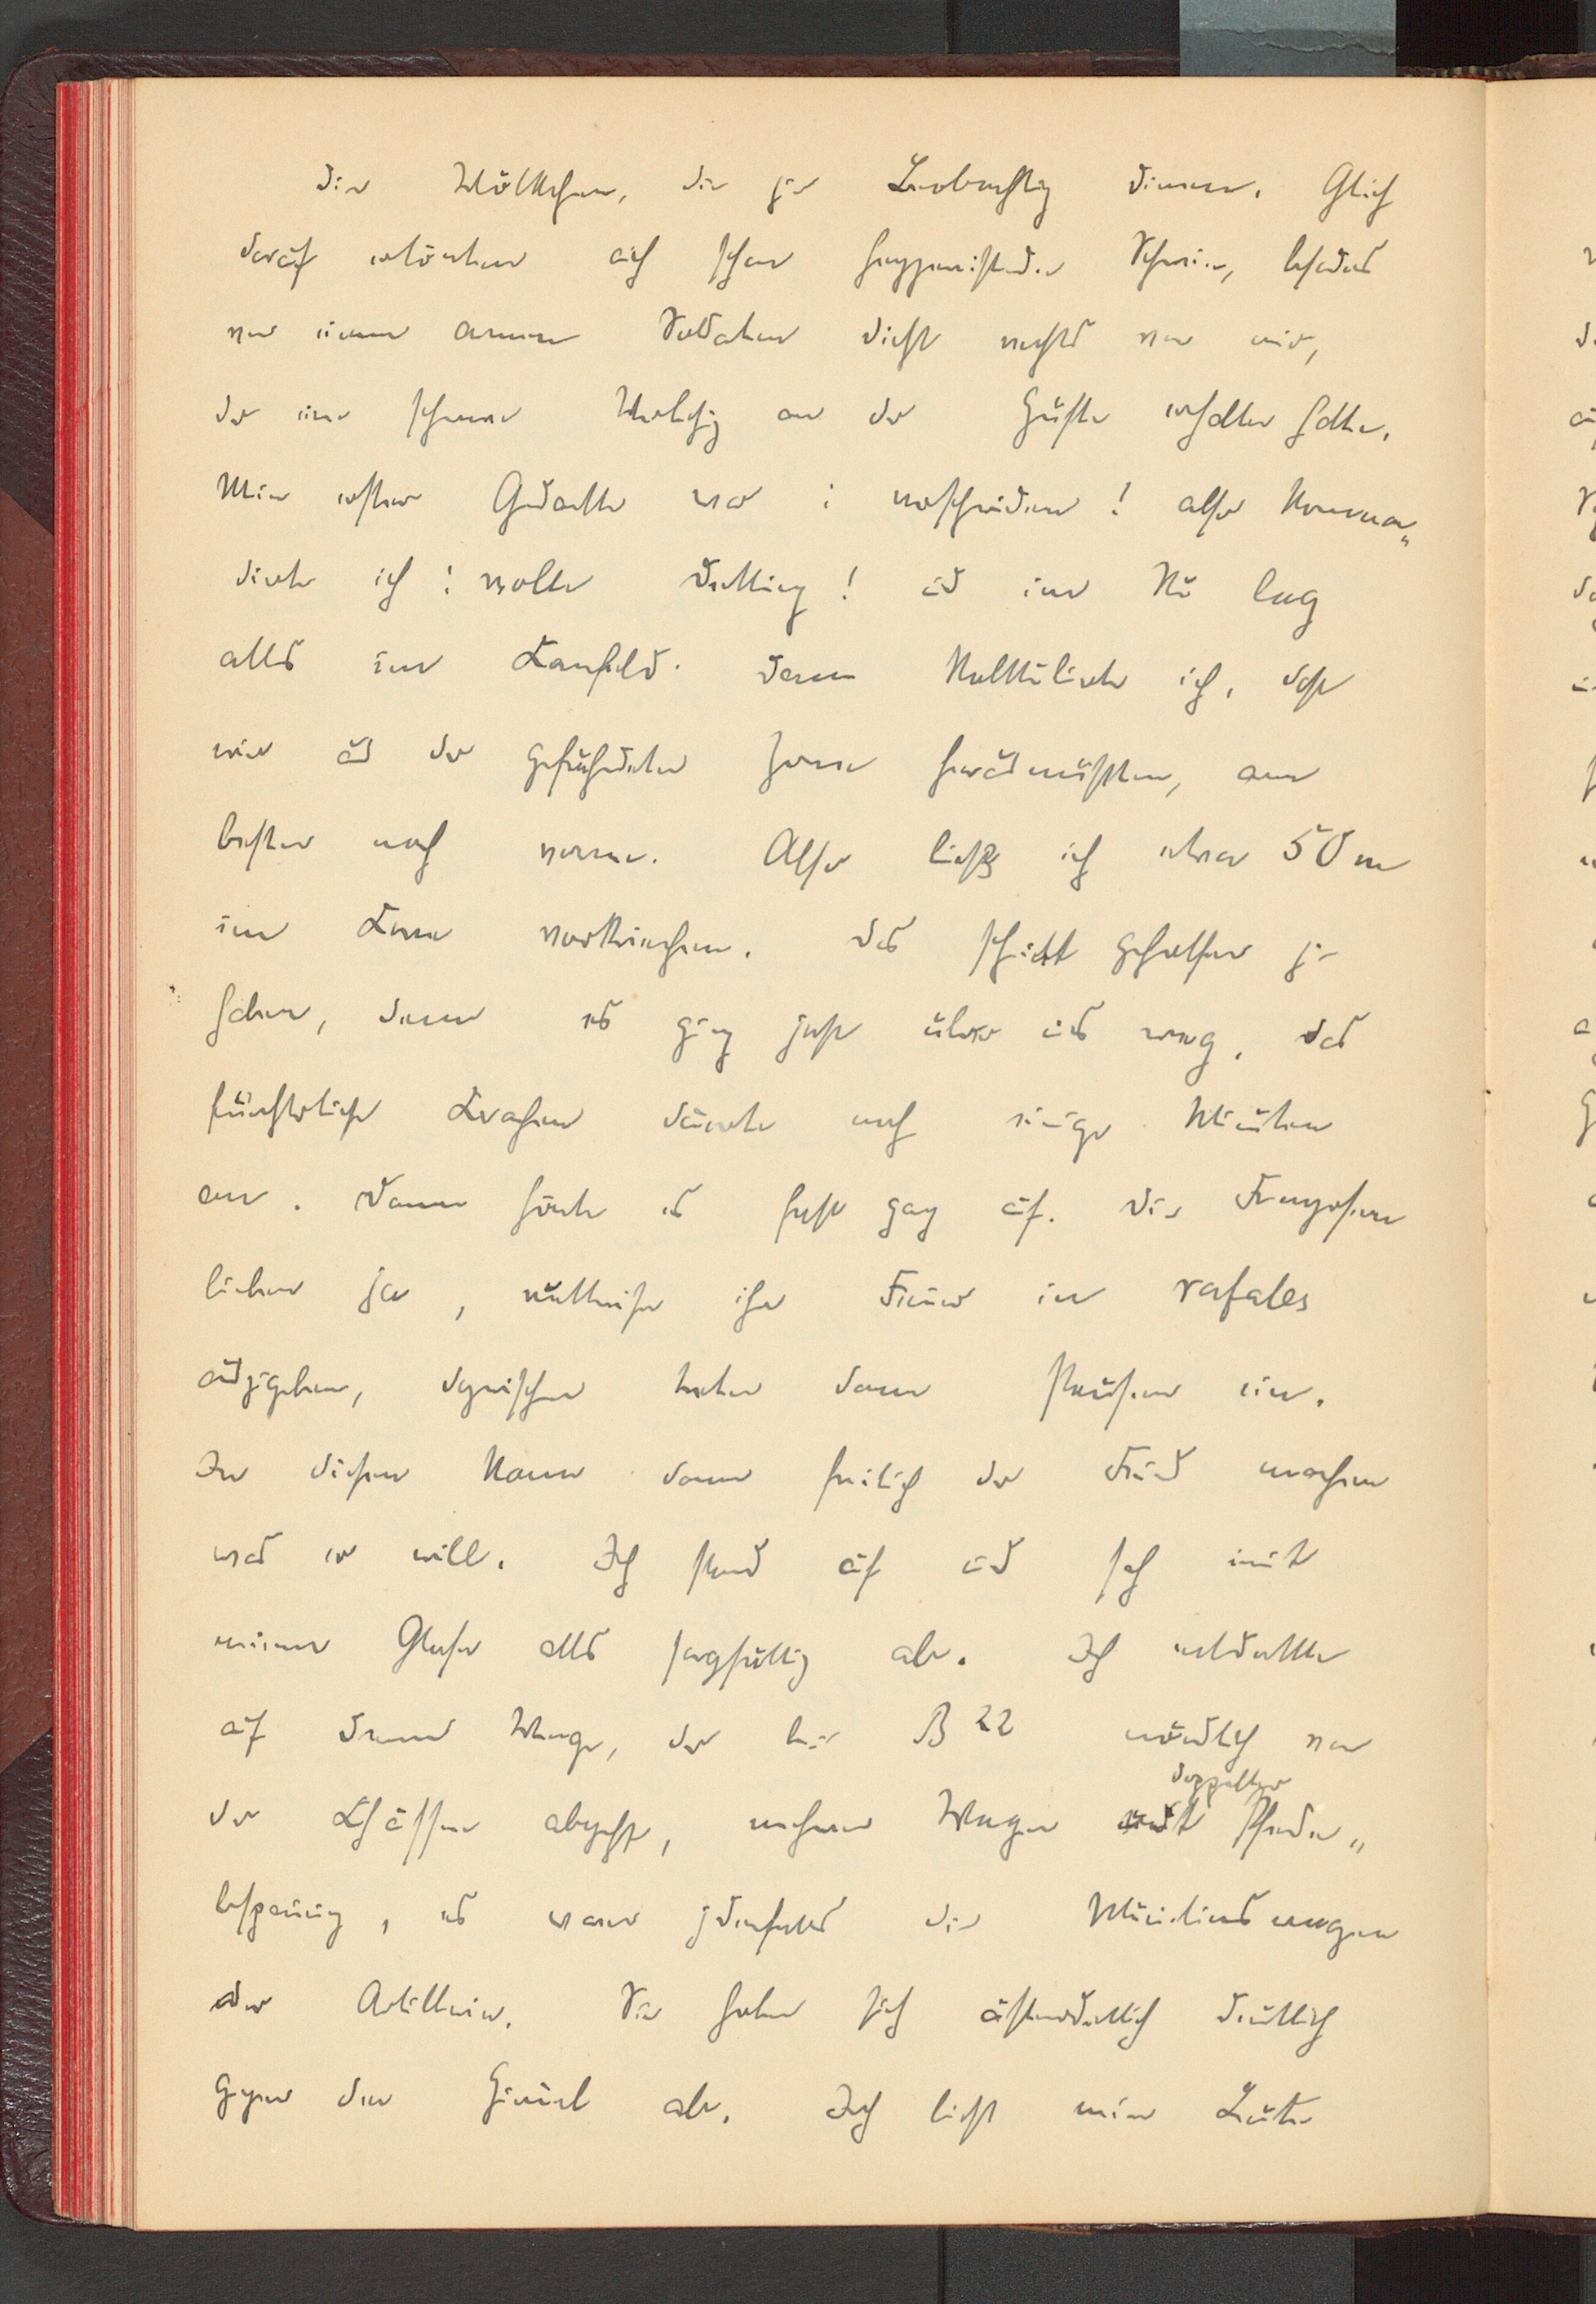 die Wölkchen, die zur Beobachtung dienen. Gleich
darauf ertönten auch schon herzzerreißende Schreie, besonders
von einem armen Soldaten dicht rechts von mir,
der eine schwere Verletzung an der Hüfte erhalten hatte.
Mein erster Gedanke war: verschwinden! also komman„
dierte ich: volle Deckung! und im Nu lag
alles im Kornfeld. Dann kalkulierte ich, dass
wir aus der gefährdeten Zone heraus müssten, am
besten nach vorne. Also ließ ich etwa 50 m
im Korn vorkriechen. Das scheint geholfen zu
haben, denn es ging jetzt über uns weg, das
fürchterliche Krachen dauerte noch einige Minuten
an. Dann hörte es fast ganz auf. Die Franzosen
lieben ja, ruckweise ihr Feuer in rafales
auszugeben, dazwischen treten dann Pausen ein.
In diesen kann dann freilich der Feind machen
was er will. Ich stand auf und sah mit
meinem Glase alles sorgfältig ab. Ich entdeckte
auf dem Wege, der bei B 22 nördlich von
der Chaussee abgeht, mehrere Wagen mit doppelter Pferde„
bespannung, es waren jedenfalls die Munitionswagen
der Artillerie. Sie hoben sich außerordentlich deutlich
gegen den Himmel ab. Ich ließ meine Leute